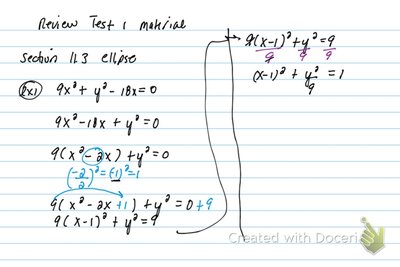 Review Test 1 material
Section 11.3 ellipse
Ex1) 9x² + y² - 18x = 0
9x² - 18x + y² = 0
9(x² - 2x) + y² = 0
(-2/2)² = (-1)² = 1
9(x² - 2x + 1) + y² = 0 + 9
9(x-1)² + y² = 9
9(x-1)²/9 + y²/9 = 9/9
(x-1)² + y²/9 = 1
Created with Doceri